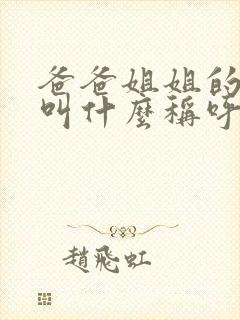 爸爸姐姐的
叫什麼稱呼
趙飛虹